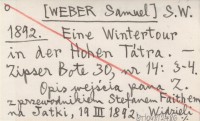 [WEBER Samuel] S.W.
1892. Eine Wintertour
in der Hohen Tátra. —
Zipser Bote 30, nr 14: 3-4.
Opis wejścia pana Z.
z przewodnikiem Stefanem Faithem
na Jatki, 19 III 1892. Widzieli